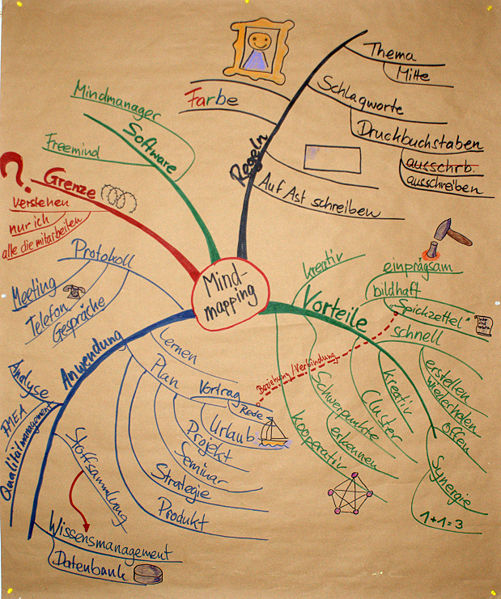 Mind-
mapping
Regeln
Thema
Mitte
Schlagworte
Druckbuchstaben
ausschrb.
ausschreiben
Auf Ast schreiben
Farbe
Software
Mindmanager
Freemind
Grenze
?
verstehen
nur ich
alle die mitarbeiten
Vorteile
kreativ
einprägsam
bildhaft
"Spickzettel"
schnell
erstellen
wiederholen
kreativ
offen
Synergie
1+1=3
Cluster
Schwerpunkte
erkennen
kooperativ
Beziehung/Verbindung
Anwendung
Protokoll
Meeting
Telefon
Gespräche
Lernen
Plan
Vortrag
Rede
Urlaub
Projekt
Seminar
Strategie
Produkt
Analyse
FMEA
Qualitätmanagement
Stoffsammlung
Wissensmanagement
Datenbank